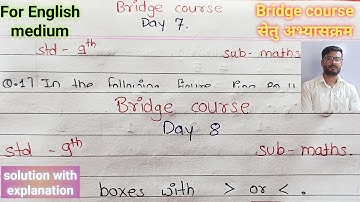 For English
medium
Bridge course
Day 7.
Bridge course
सेतु अभ्यासक्रम
std - 9th
sub- maths
Q.17 In the following figure
Bridge course
Day 8
std - 9th
sub- maths.
solution with
explanation
boxes with > or < .